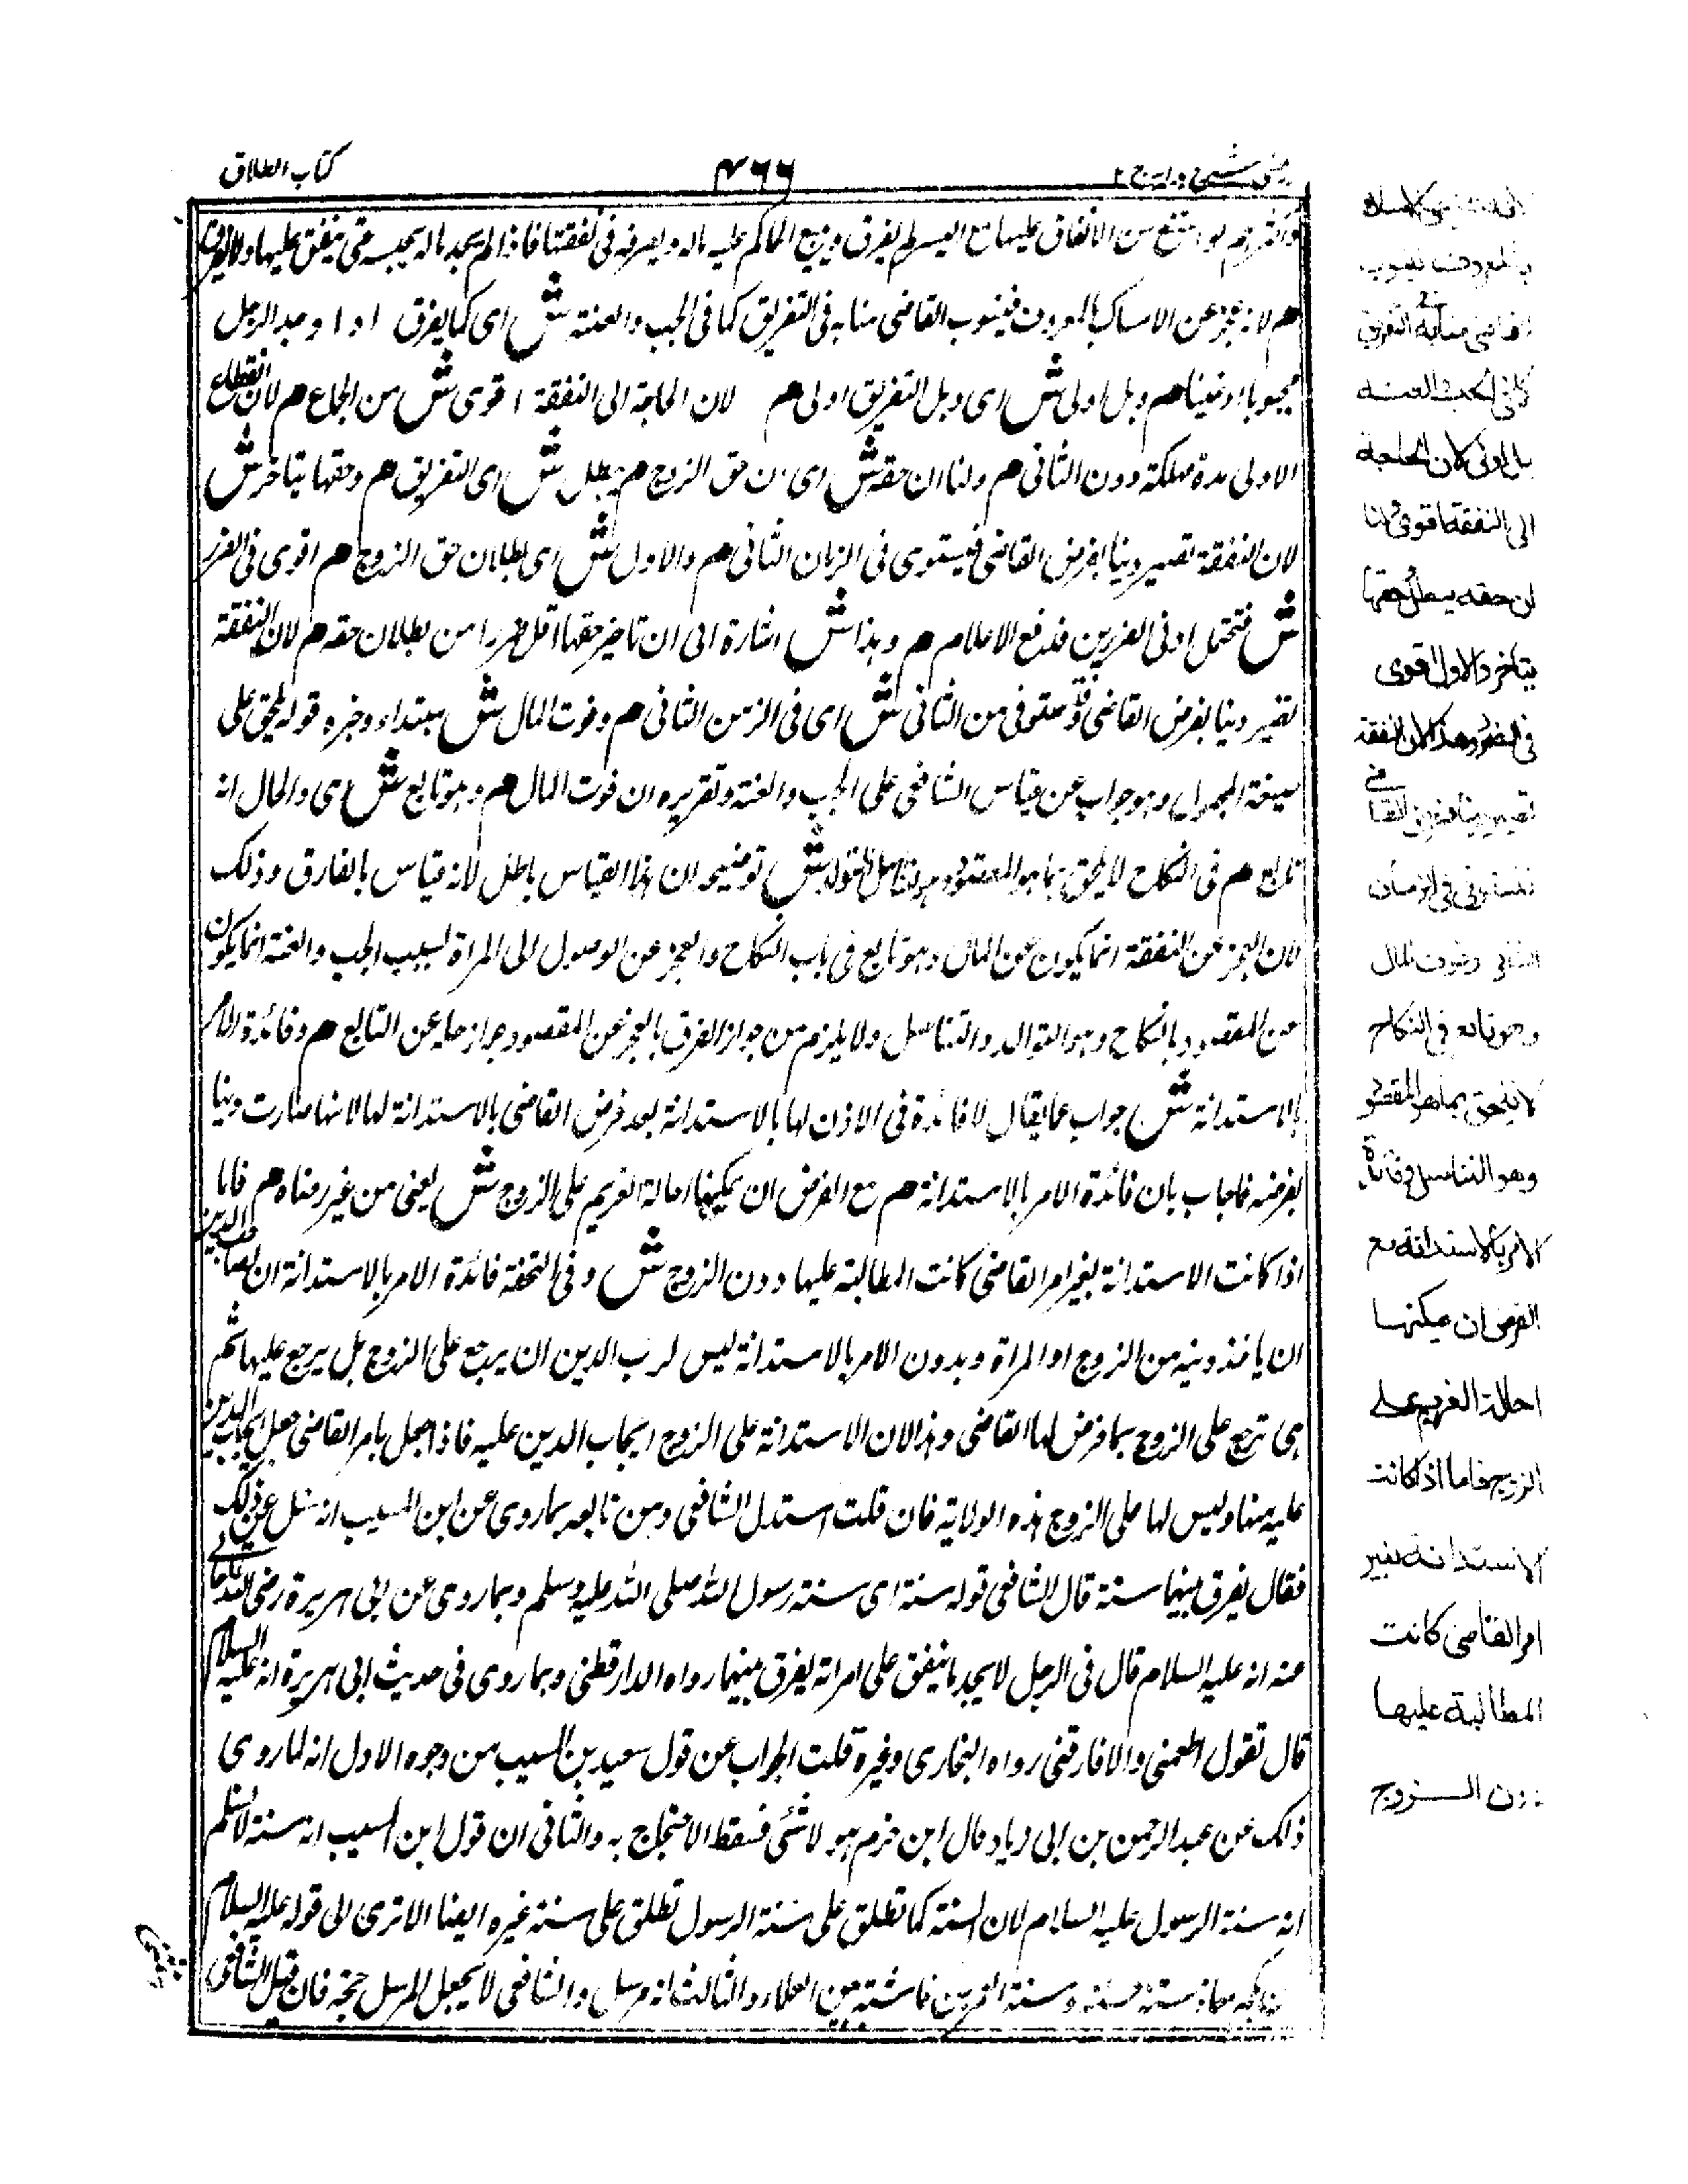 كتاب الطلاق
٤٦٦
لو امتنع من الانفاق عليها مع اليسر لم يفرق ويبيع الحاكم عليه ماله ويصرفه فى نفقتها فاذا لم يجد ماله يحبسه حتى ينفق عليها ولا يفرق
هم لانه عجز عن الامساك بالمعروف فينوب القاضى منابه فى التفريق كما فى الجب والعنته ش اى كما يفرق اذا وجد الرجل
مجبوبا او عنينا هم وبل اولى ش اى وبل التفريق اولى هم لان الحاجة الى النفقة اقوى ش من الجماع هم لان انقطاع
الاولى مدة مهلكة دون الثانى هم ولنا ان حقه ش اى ان حق الزوج هم يبطل ش اى التفريق هم وحقها يتاخر ش
لان النفقة تصير دينا بفرض القاضى فيستوى فى الزمان الثانى هم والاول ش اى بطلان حق الزوج هم اقوى فى الضرر
ش فتحمل ادنى الضررين فدفع الاعلام هم وهذا ش اشارة الى ان تاخير حقها اقل ضررا من بطلان حقه هم لان النفقة
تصير دينا بفرض القاضى فتستوفى من الثانى ش اى فى الزمن الثانى هم وفوت المال ش مبتداء وخبره قوله يلحق على
صيغة المجهول وهو جواب عن قياس الشافعى على الجب والعنة وتقريره ان فوت المال هم وهو تابع ش اى والحال انه
تابع هم فى النكاح لا يلحق بما هو المقصود وهو التناسل ش توضيحه ان هذا القياس باطل لانه قياس بالفارق وذلك
لان العجز عن النفقة انما يكون عن المال وهو تابع فى باب النكاح والعجز عن الوصول الى المراة بسبب الجب والعنة انما يكون
عن المقصود بالنكاح وهو التوالد والتناسل ولا يلزم من جواز الفرق بالعجز عن المقصود جوازها عن التابع هم وفائدة الامر
بالاستدانة ش جواب عما يقال لا فائدة فى الاذن لها بالاستدانة بعد فرض القاضى بالاستدانة لها لانها صارت دينا
بفرضه فاجاب بان فائدة الامر بالاستدانة هم مع الفرض ان يمكنها احالة الغريم على الزوج ش يعنى من غير رضاه هم فاما
اذا كانت الاستدانة بغير امر القاضى كانت المطالبة عليها دون الزوج ش وفى التحفة فائدة الامر بالاستدانة ان لصاحب الدين
ان ياخذ دينه من الزوج او المراة وبدون الامر بالاستدانة ليس لرب الدين ان يرجع على الزوج بل يرجع عليها ثم
هى ترجع على الزوج بما فرض لها القاضى وهذا لان الاستدانة على الزوج ايجاب الدين عليه فاذا حصل بامر القاضى جعل ايجاب الدين
عليه منها وليس لها على الزوج هذه الولاية فان قلت استدل الشافعى ومن تابعه بما روى عن ابن المسيب انه سئل عن ذلك
فقال يفرق بينهما سنة قال الشافعى قوله سنة اى سنة رسول الله صلى الله عليه وسلم وبما روى عن ابى هريرة رضى الله تعالى
عنه انه عليه السلام قال فى الرجل لا يجد ما ينفق على امراته يفرق بينهما رواه الدارقطنى وبما روى فى حديث ابى هريرة انه عليه السلام
قال تقول اطعمنى والا فارقنى رواه البخارى وغيره قلت الجواب عن قول سعيد بن المسيب من وجوه الاول انه لما روى
ذلك عن عبد الرحمن بن ابى زياد قال ابن حزم هو لا شئ فسقط الاحتجاج به والثانى ان قول ابن المسيب انه سنة لا نسلم
انه سنة الرسول عليه السلام لان السنة كما تطلق على سنة الرسول تطلق على سنة غيره ايضا الا ترى الى قوله عليه السلام
معاذ سنة حسنة وسنة العمرين فاشية بين العلماء والثالث انه مرسل والشافعى لا يجعل المرسل حجة فان قيل الشافعى
بالمعروف فينوب
القاضى منابه فى التفريق
كما فى الجب والعنة
بل اولى لان الحاجة
الى النفقة اقوى ولنا
ان حقه يبطل وحقها
يتاخر والاول اقوى
فى الضرر وهذا لان النفقة
تصير دينا بفرض القاضى
فتستوفى فى الزمان
الثانى وفوت المال
وهو تابع فى النكاح
لا يلحق بما هو المقصود
وهو التناسل وفائدة
الامر بالاستدانة مع
الفرض ان يمكنها
احالة الغريم على
الزوج فاما اذا كانت
الاستدانة بغير
امر القاضى كانت
المطالبة عليها
دون الزوج